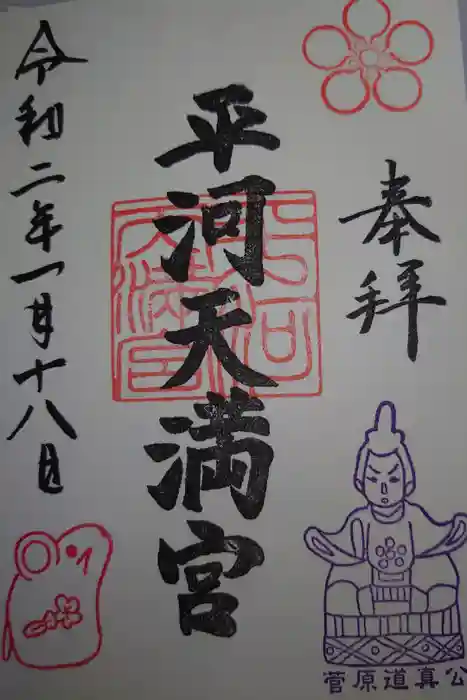 奉拝
平河天満宮
令和二年一月十八日
菅原道真公